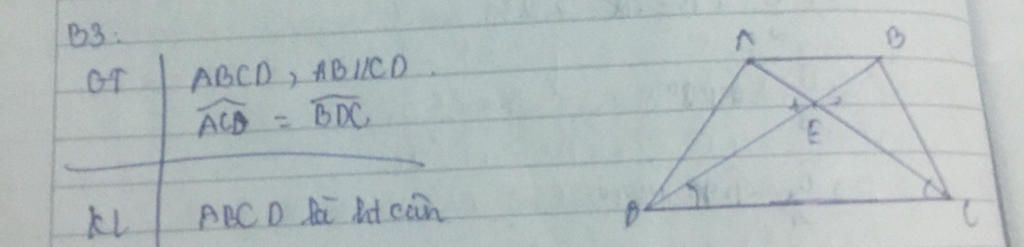 B3:
GT ABCD, AB//CD.
ACD = BDC
KL ABCD là ht cân
A B
E
D C